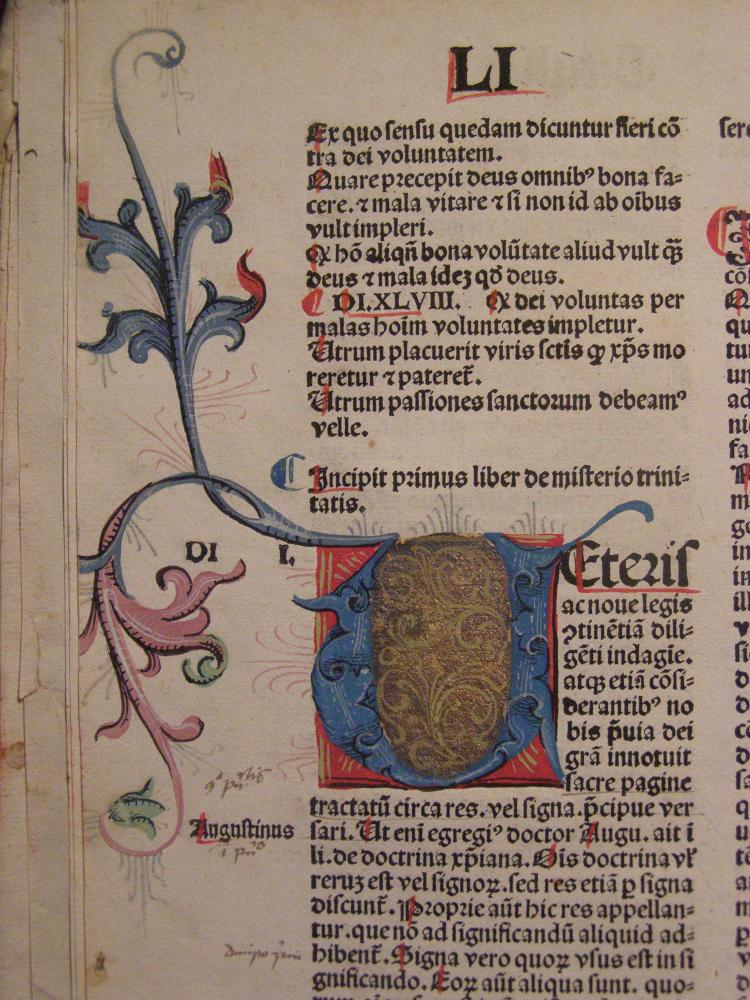 LI
Ex quo sensu quedam dicuntur fieri cō
tra dei voluntatem.
Quare precepit deus omnibꝰ bona fa⸗
cere. ⁊ mala vitare ⁊ si non id ab oībus
vult impleri.
Ꝙ hō aliqñ bona volūtate aliud vult q̄ꝫ
deus ⁊ mala idez qd̄ deus.
DI.XLVIII. Ꝙ dei voluntas per
malas hoīm voluntates impletur.
Utrum placuerit viris sctīs ꝙ xp̄s mo
reretur ⁊ pateret̄.
Utrum passiones sanctorum debeamꝰ
velle.
Incipit primus liber de misterio trini⸗
tatis.
DI I.
VEteris
ac noue legis
ꝯtinētiā dili⸗
gēti indagīe.
atqꝫ etiā cōsi⸗
derantibꝰ no
bis p̄uia dei
grā innotuit
sacre pagine
tractatū circa res. vel signa. p̄cipue ver
Augustinus
sari. Ut enī egregiꝰ doctor Augu. ait ī
li. de doctrina xp̄iana. Oīs doctrina vł
reruꝫ est vel signoꝝ. sed res etiā ꝑ signa
discunt̄. Proprie aūt hic res appellan⸗
tur. que nō ad significandū aliquid ad⸗
hibent̄. Signa vero quoꝝ vsus est in si
gnificando. Eoꝝ aūt aliqua sunt. quo⸗